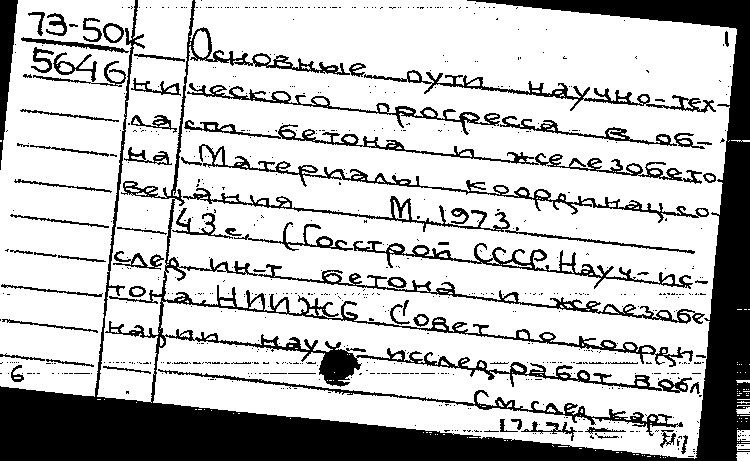 73-50к
5646
1
Основные пути научно-тех-
нического прогресса в об-
ласти бетона и железобето
на. Материалы координац. со-
вещания М., 1973.
43 с. (Госстрой СССР. Науч-ис-
след ин-т бетона и железобе-
тона. НИИЖБ. Совет по коорди-
нации науч-исслед. работ в обл.
См. след. карт.
17.1.74
6